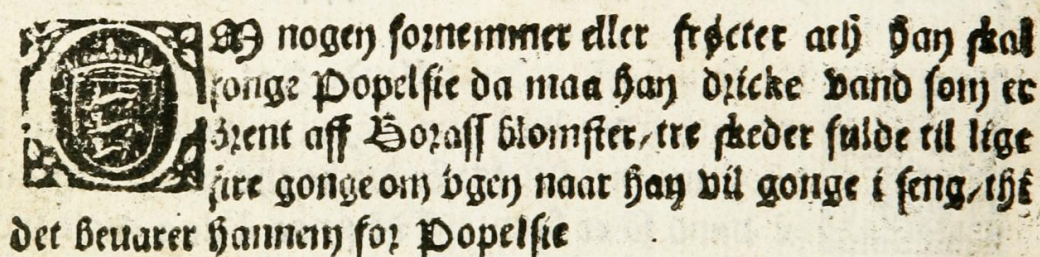 OM nogen fornemmer eller frøcter ath han skal
fonge Popelsie da maa han dricke vand som er
brent aff Borass blomster/ tre skeder fulde til lige
fire gonge om vgen naar han vil gonge i seng/ thi
det beuarer hannem for Popelsie